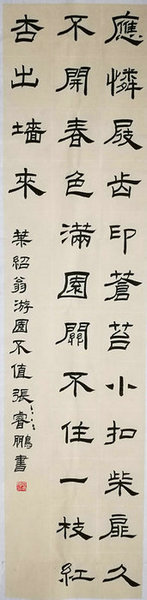 應憐屐齿印蒼苔小扣柴扉久
不開春色滿園關不住一枝紅
杏出墻來
葉紹翁游園不值張睿鵬書